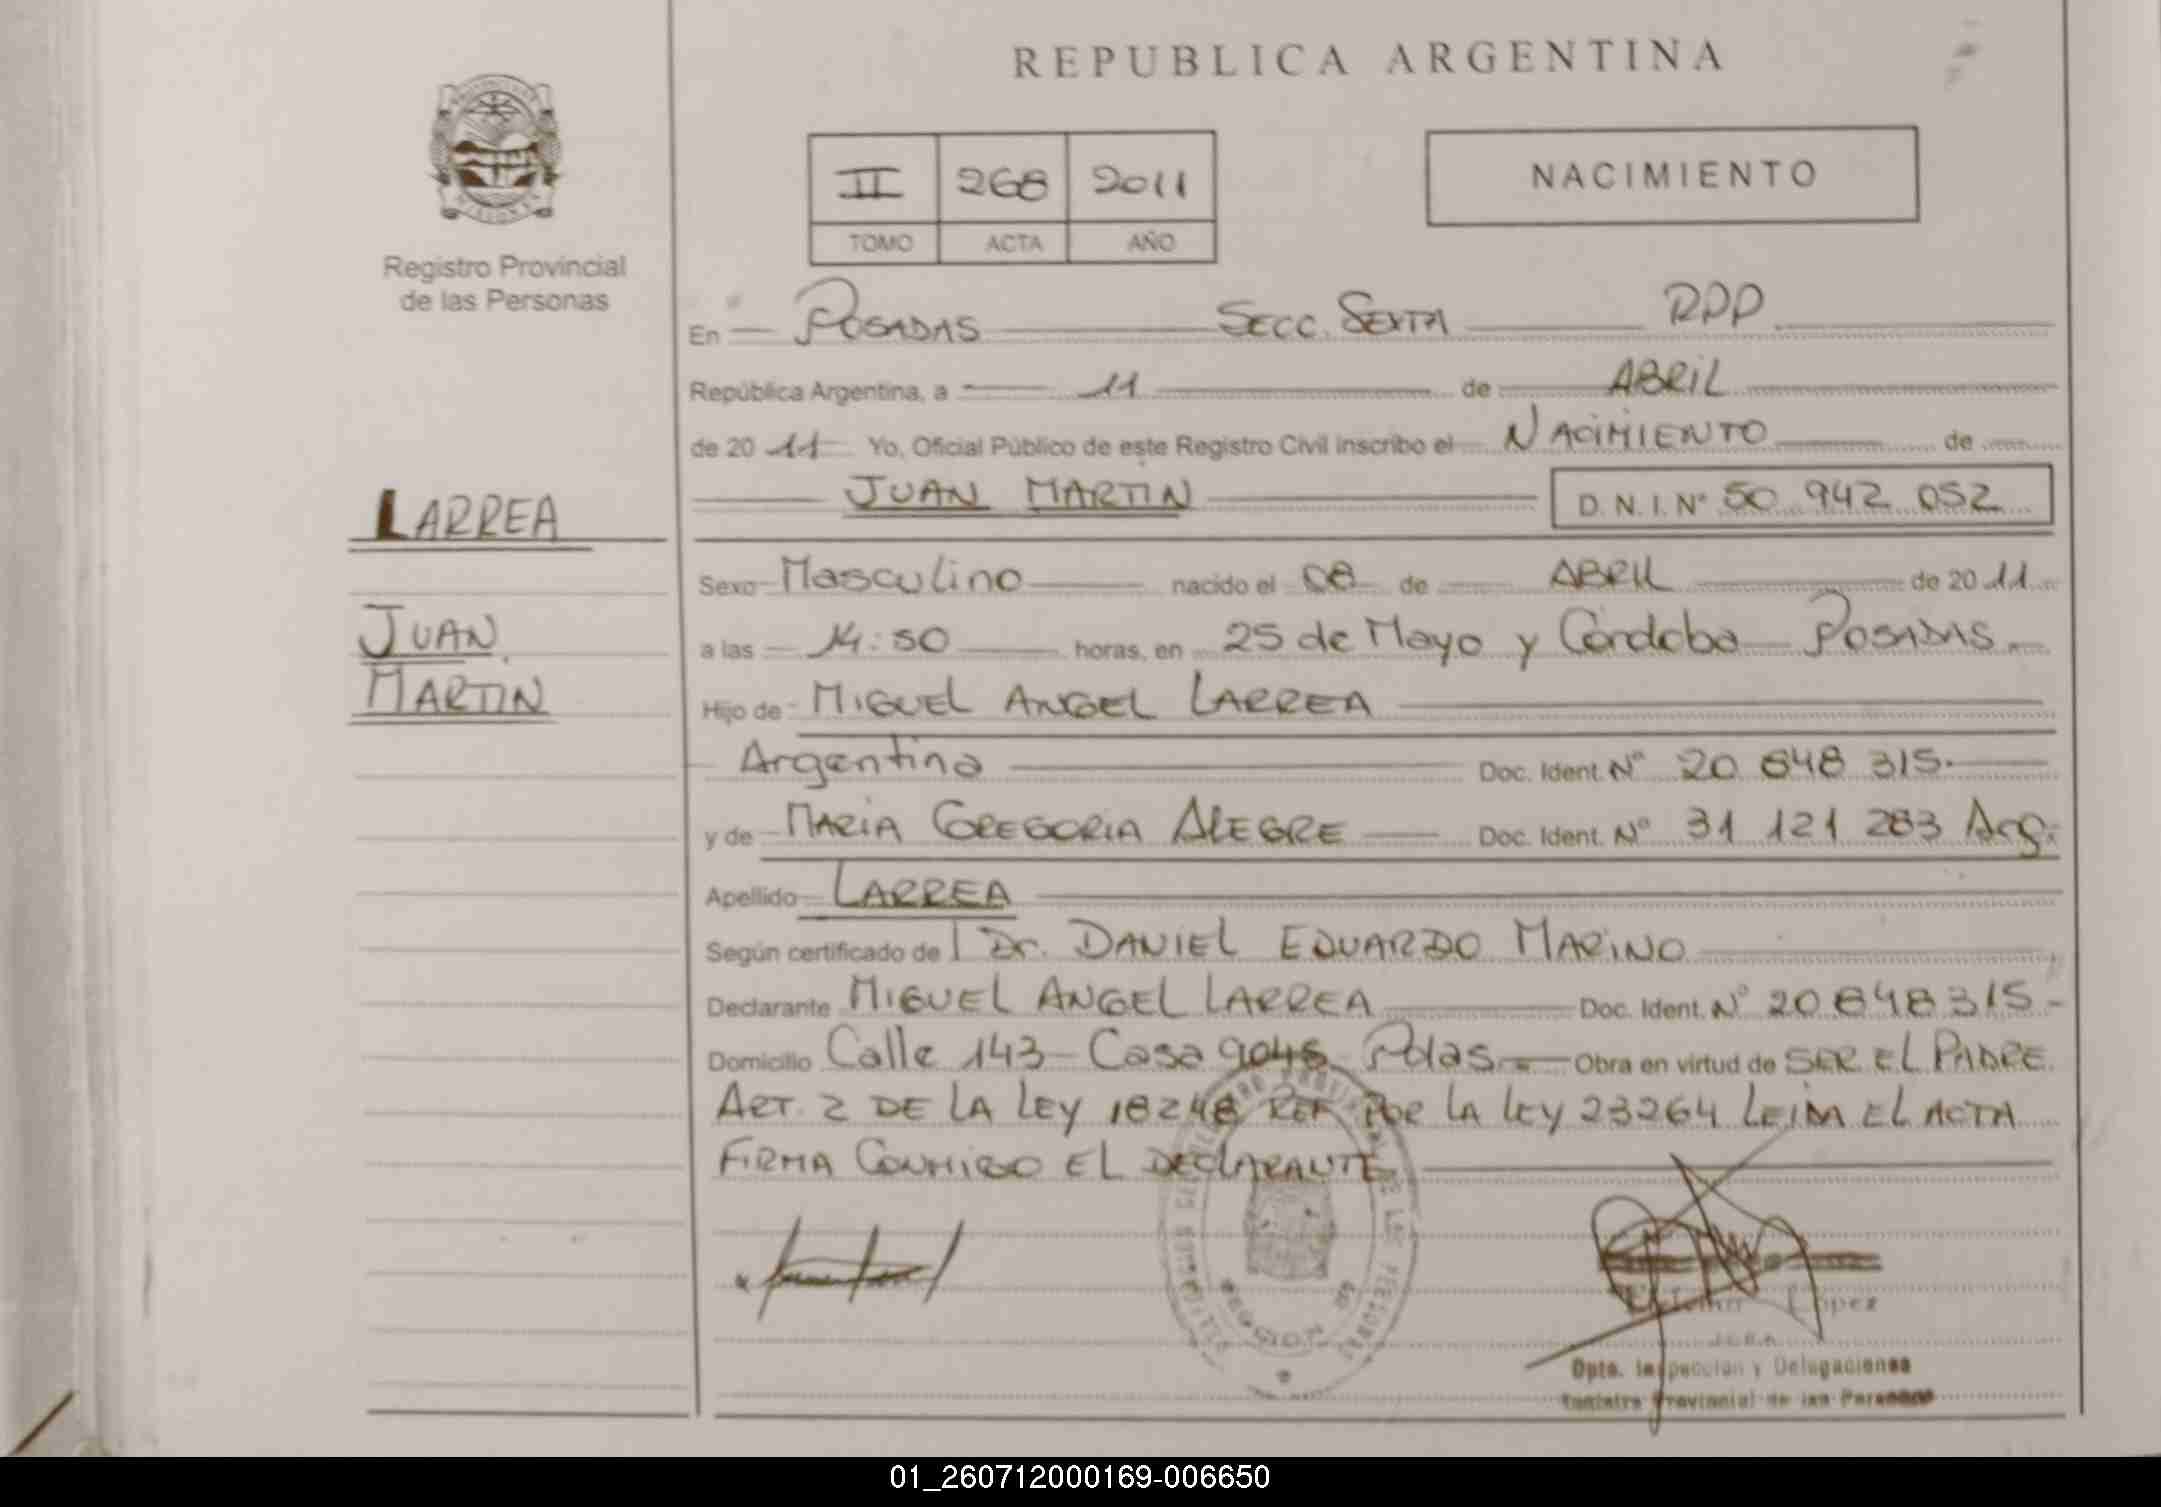 REPUBLICA ARGENTINA
II 268 2011
TOMO ACTA AÑO
NACIMIENTO
Registro Provincial
de las Personas
En POSADAS SECC. SEXTA RPP
República Argentina, a 11 de ABRIL
de 20 11 Yo, Oficial Público de este Registro Civil inscribo el NACIMIENTO de
JUAN MARTIN D. N. I. Nº 50 942 052
LARREA
JUAN
MARTIN
Sexo Masculino nacido el 08 de ABRIL de 20 11
a las 14:50 horas, en 25 de Mayo y Córdoba POSADAS
Hijo de MIGUEL ANGEL LARREA
Argentina Doc. Ident. Nº 20 848 315
y de MARIA GREGORIA ALEGRE Doc. Ident. Nº 31 121 283 Arg.
Apellido LARREA
Según certificado de Dr. DANIEL EDUARDO MARINO
Declarante MIGUEL ANGEL LARREA Doc. Ident. Nº 20 848 315
Domicilio Calle 143 Casa 9046 Pdas Obra en virtud de SER EL PADRE
ART. 2 DE LA LEY 18248 REF POR LA LEY 23264 LEIDA EL ACTA
FIRMA CONMIGO EL DECLARANTE
López
Dpto. Inspección y Delegaciones
Registro Provincial de las Personas
01_260712000169-006650